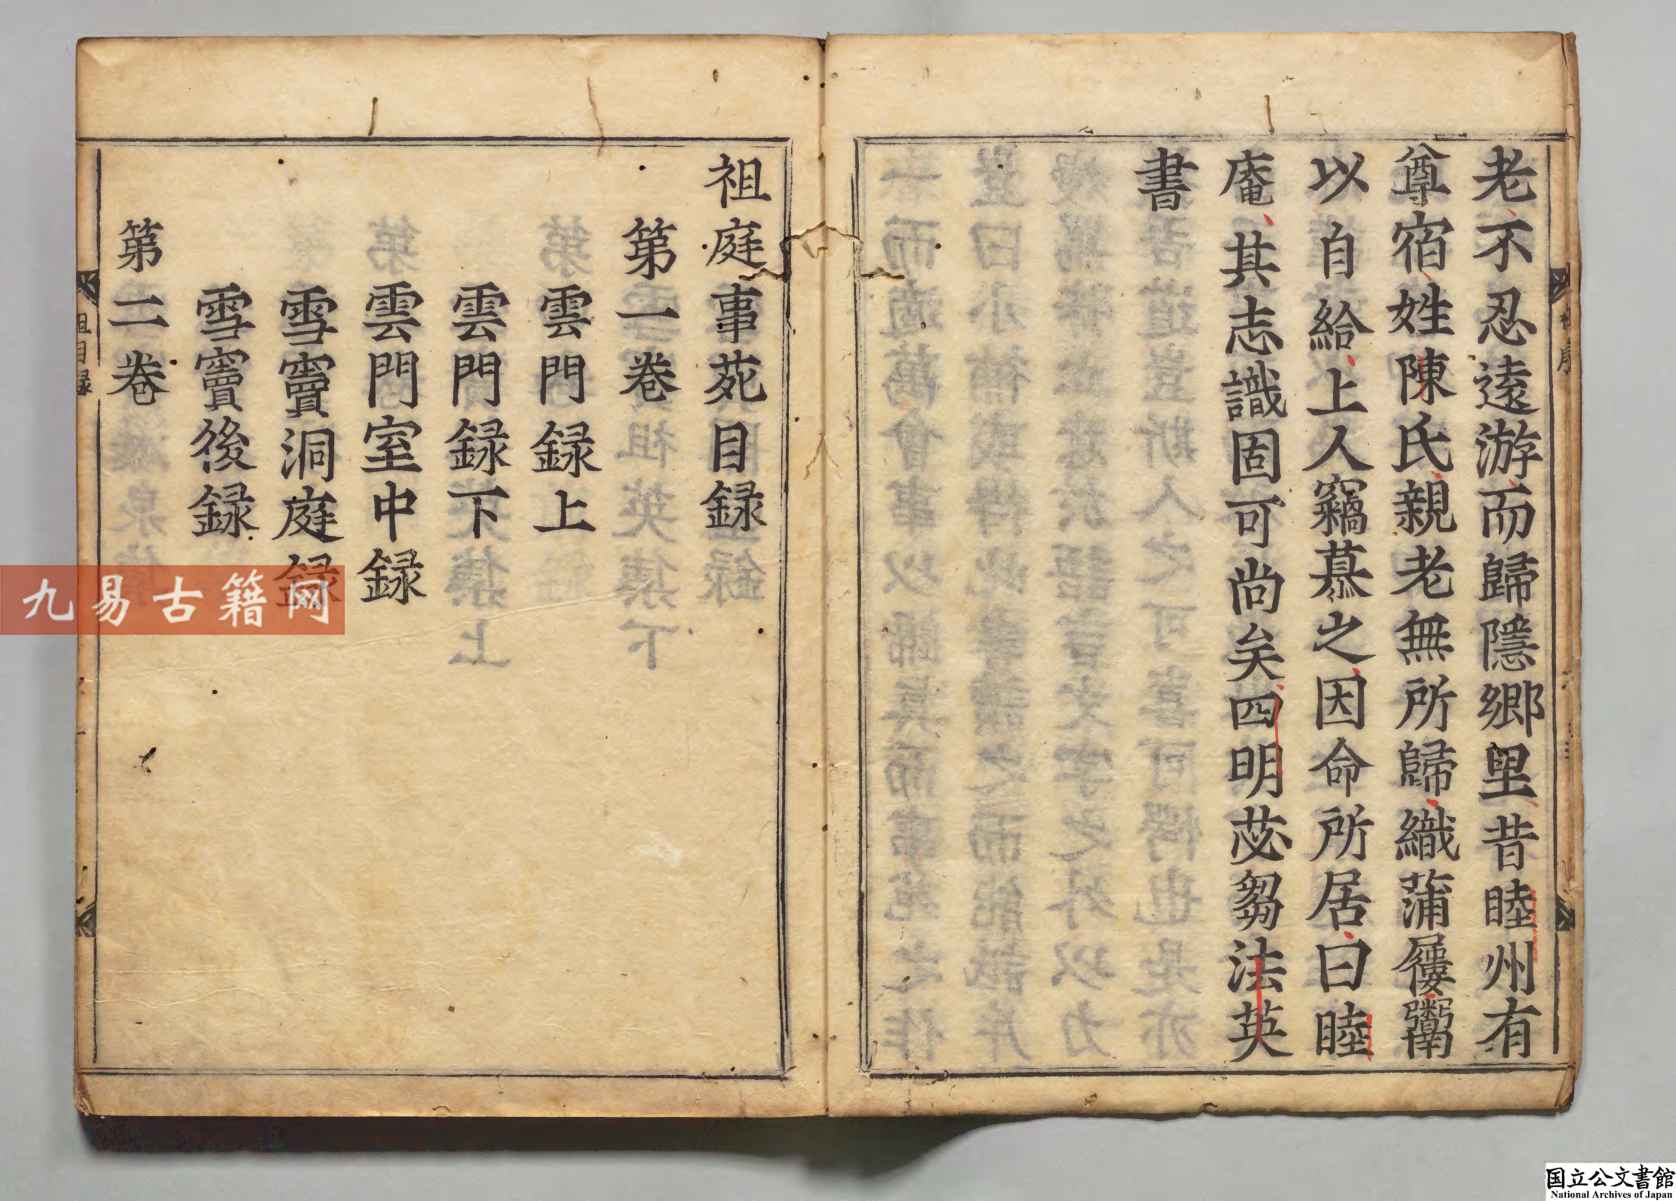 老不忍遠游而歸隱鄉里昔睦州有
尊宿姓陳氏親老無所歸織蒲屨鬻
以自給上人竊慕之因命所居曰睦
庵其志識固可尚矣四明苾芻法英
書
祖庭事苑目録
第一卷
雲門録上
雲門録下
雲門室中録
雪竇洞庭録
雪竇後録
第二卷
祖目録
九易古籍网
国立公文書館
National Archives of Japan